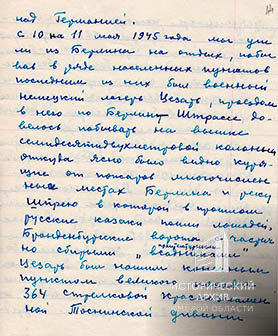 над Германией.
С 10 на 11 мая 1945 года мы уш
ли из Берлина на отдых, побы
вав в ряде населенных пунктов
последним из них был военный
немецкий лагерь Цезарь, проездом
в него по Берлинг Штрассе до-
велось побывать на вышке
семидесятидвухметровой колонны
откуда ясно было видно куря-
щие от пожаров многочислен
ные места Берлина и реку
Шпрею в которой в прошлом
русские казаки поили лошадей,
Бранденбурские ворота частич
но сбитыми "всадниками"
Цезарь был нашим конечным
пунктом великого
364 стрелковой Краснознамен
ной Тосненской дивизии
ИСТОРИЧЕСКИЙ
АРХИВ